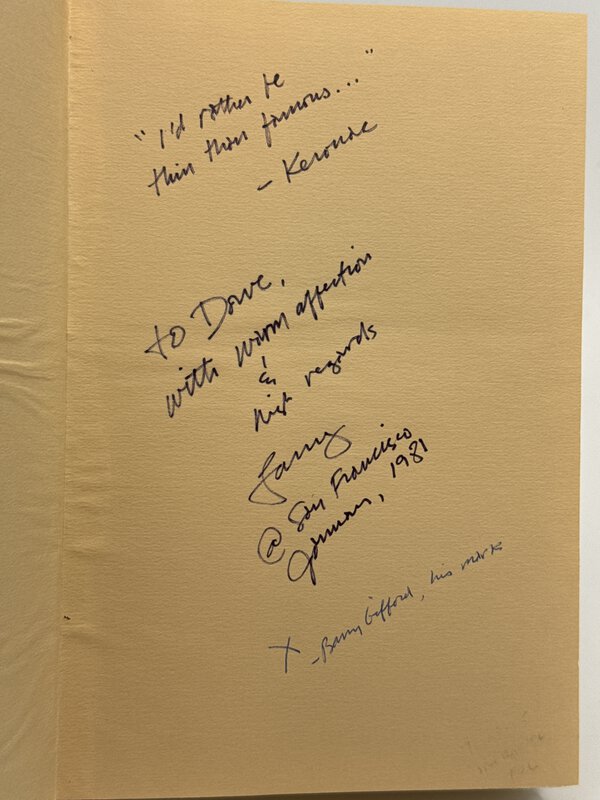 "I'd rather be
thin than famous..."
– Kerouac
to Dave,
with warm affection
&
best regards
Larry
@ San Francisco
January, 1981
X – Barry Gifford, his mark